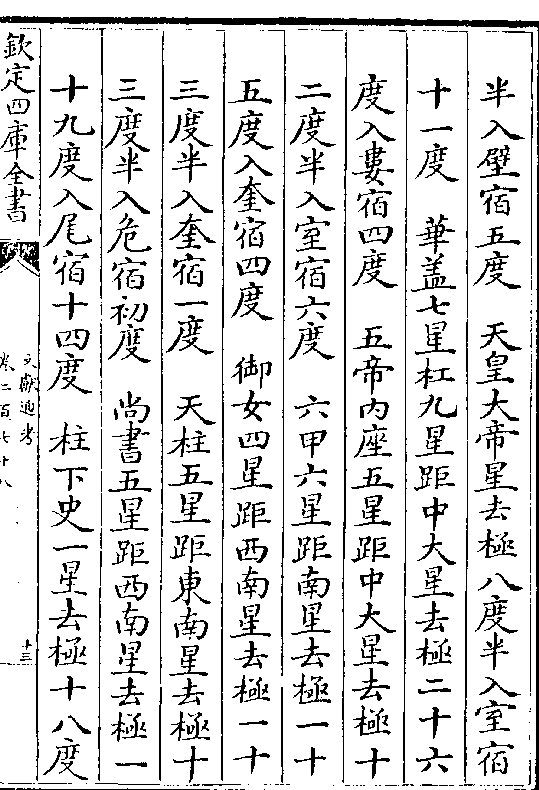 半入壁宿五度　天皇大帝星去極八度半入室宿
十一度　華盖七星杠九星距中大星去極二十六
度入婁宿四度　五帝內座五星距中大星去極十
二度半入室宿六度　六甲六星距南星去極一十
五度入奎宿四度　御女四星距西南星去極一十
三度半入奎宿一度　天柱五星距東南星去極十
三度半入危宿初度　尚書五星距西南星去極一
十九度入尾宿十四度　柱下史一星去極十八度
欽定四庫全書
文獻通考
卷二百七十八
十三